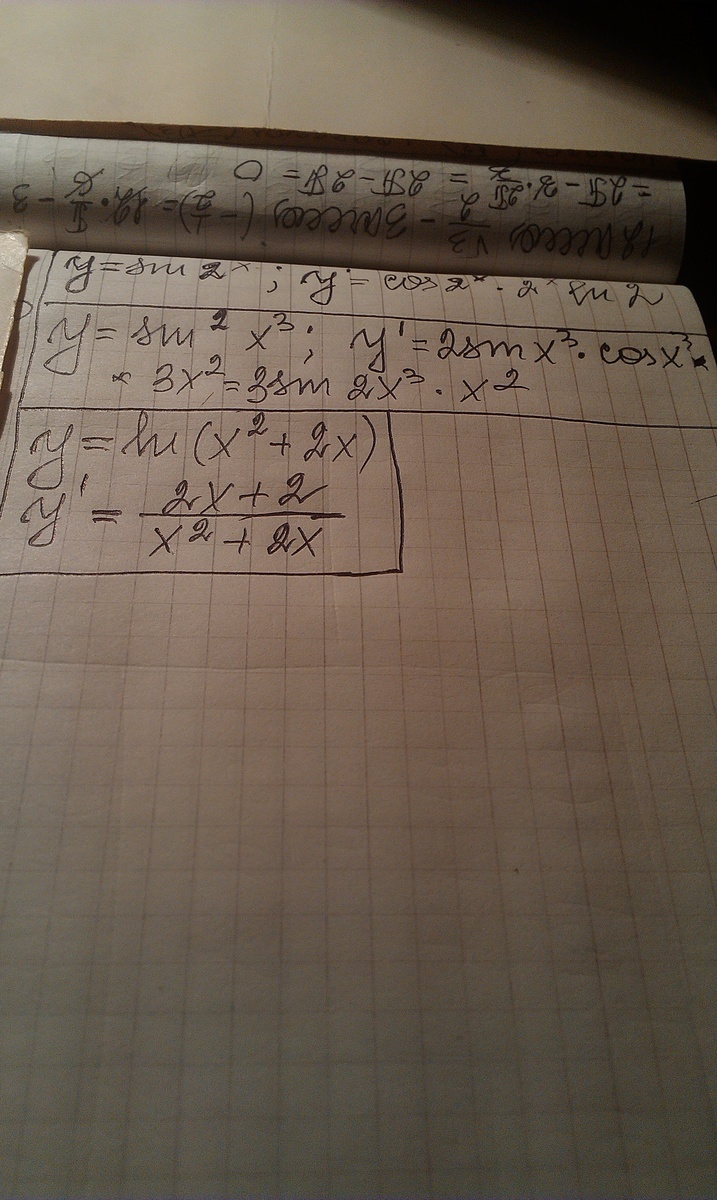 12 arccos √3/2 - 3 arccos (-1/2) = 12 · π/6 - 3
= 2π - 3 · 2π/3 = 2π - 2π = 0
y = sin 2^x ; y' = cos 2^x · 2^x ln 2
y = sin² x³ ; y' = 2 sin x³ · cos x³ ·
· 3x² = 3 sin 2x³ · x²
y = ln (x² + 2x)
y' = (2x + 2)/(x² + 2x)